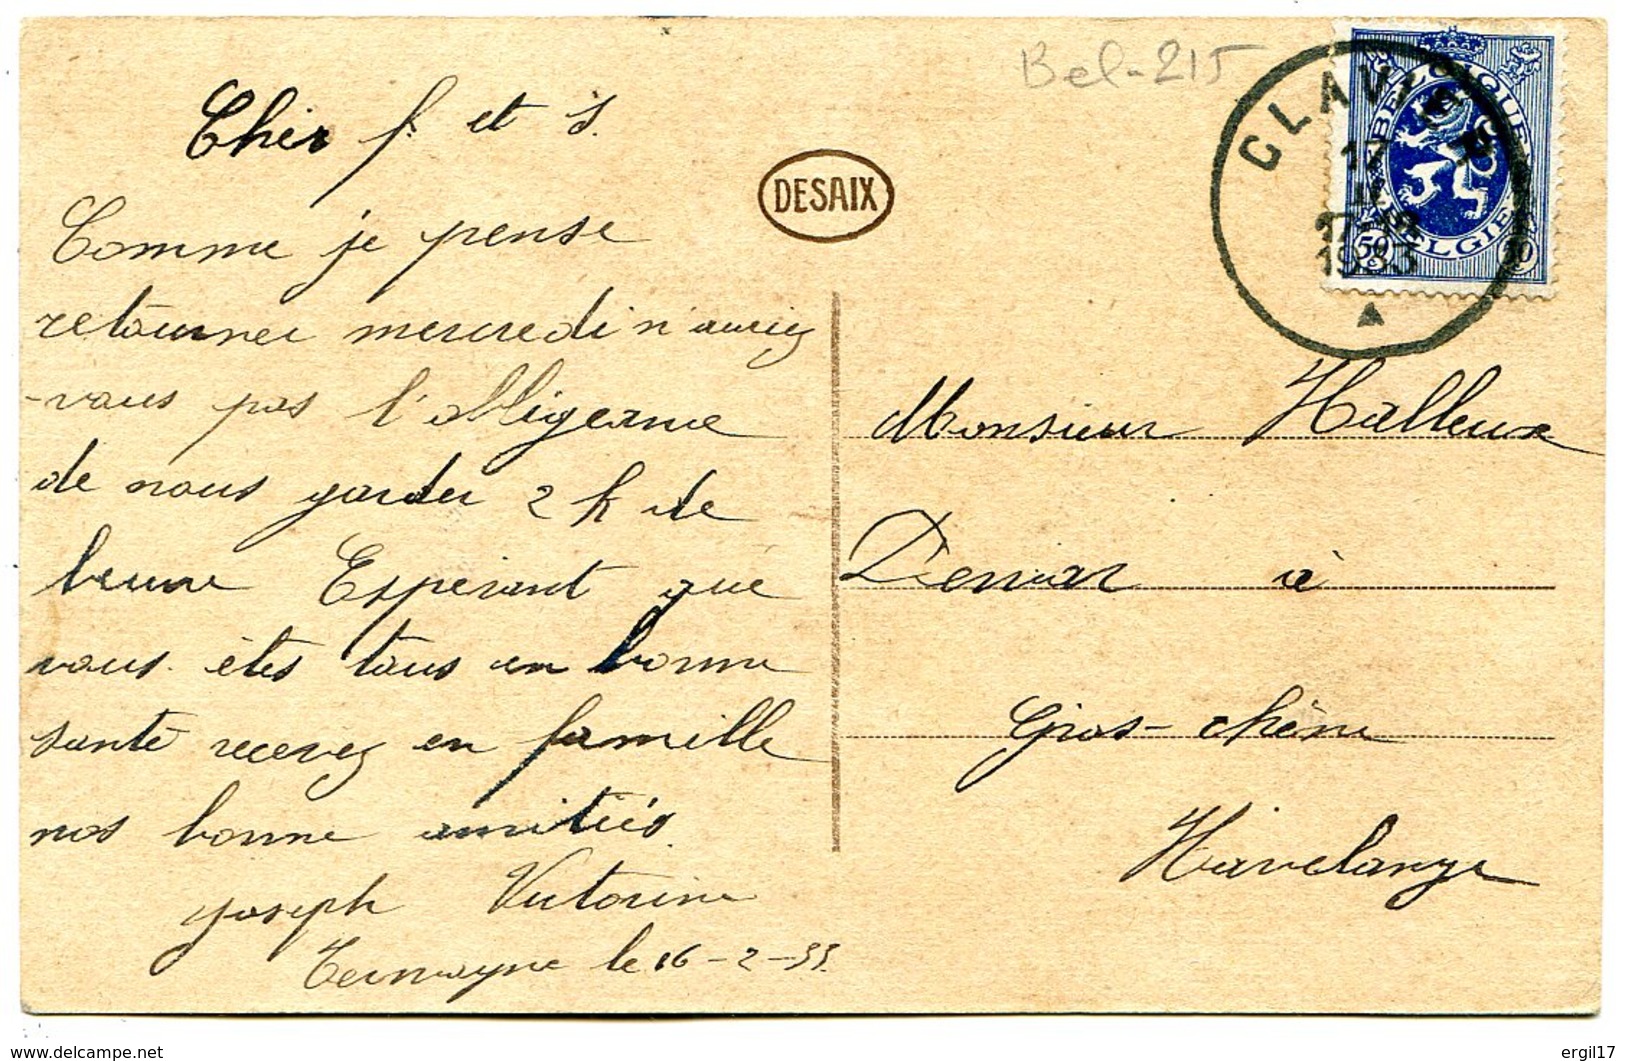 Bel-215
Cher f. et s.
Comme je pense
retourner mercredi n'auriez
-vous pas l'obligeance
de nous garder 2 k de
beurre Esperant que
vous êtes tous en bonne
santé recevez en famille
nos bonne amitiés.
Joseph Victorine
Termogne le 16-2-33.
DESAIX
CLAVIER
17
II
1933
BELGIQUE
BELGIE
50 c
50 c
Monsieur Halleux
à
Gros-chêne
Havelange
www.delcampe.net
ergil17